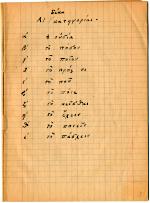 δέκα
Αἱ κατηγορίαι
α΄ ἡ οὐσία
β΄ τὸ ποσόν
γ΄ τὸ ποιόν
δ΄ τὸ πρός τι
ε΄ τὸ ποῦ
τὸ πότε
ζ΄ τὸ κεῖσθαι
η΄ τὸ ἔχειν
θ΄ τὸ ποιεῖν
ι΄ τὸ πάσχειν